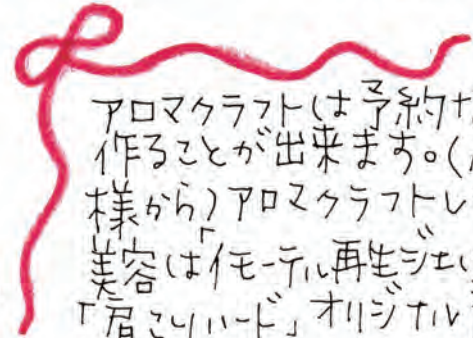 アロマクラフトは予約
作ることが出来ます。(
様から)アロマクラフトレ
美容は「イモーテル再生ジェ
「肩こりハード」オリジナル